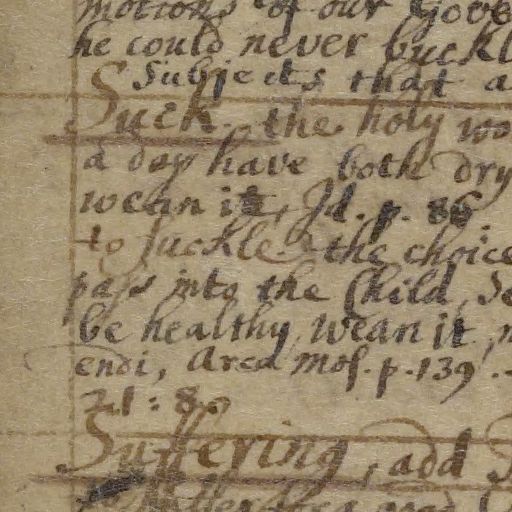 motions of our Gove
he could never buckl
Subjects that a
Suck. the holy wo
a day have both dry
wean it, Id. p. 86
to suckle the choice
pass into the Child, Se
be healthy, wean it, n
endi, Area Mos. p. 139.
21: 8.
Suffering, add S